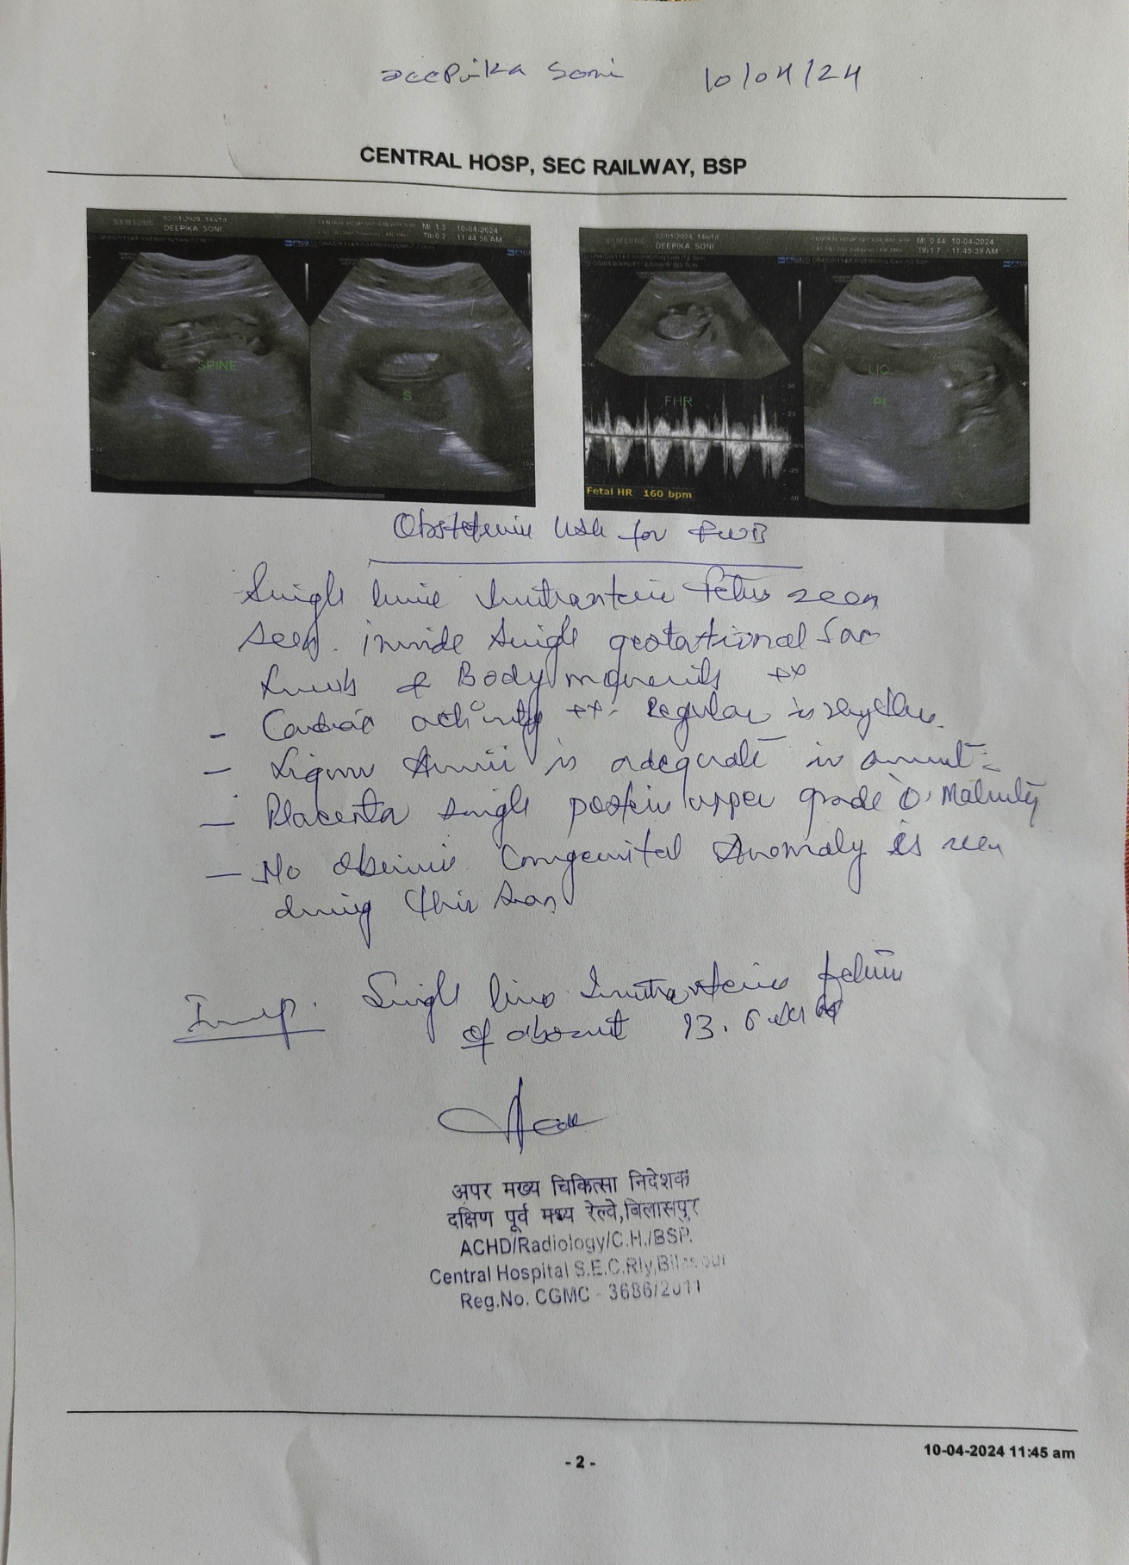 Deepika Soni 10/04/24
CENTRAL HOSP, SEC RAILWAY, BSP
SAMSUNG DEEPIKA SONI MI 1.3 10-04-2024
TIb 0.2 11:44:56 AM
SAMSUNG DEEPIKA SONI MI 0.44 10-04-2024
TIb 1.7 11:45:39 AM
SPINE
S
FHR
LIQ
Pl
Fetal HR 160 bpm
Obstetric USG for FWB
Single live Intrauterine fetus seen
seen. inside single gestational Sac
Limb & Body movements ++
- Cardiac activity ++. Regular in rhythm.
- Liquor Amnii is adequate in amount
- Placenta single posterior upper grade 0. Maturity
- No obvious Congenital Anomaly is seen
during this scan
Imp. Single live Intrauterine fetus
of about 13.6
अपर मख्य चिकित्सा निदेशक
दक्षिण पूर्व मध्य रेल्वे,बिलासपुर
ACHD/Radiology/C.H./BSP.
Central Hospital S.E.C.Rly,Bilaspur
Reg.No. CGMC - 3686/2011
- 2 -
10-04-2024 11:45 am